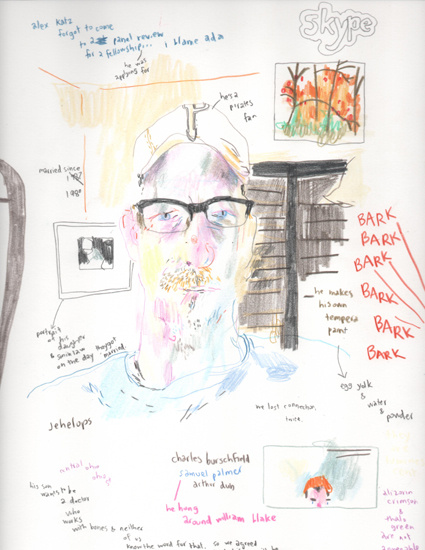 alex katz
forgot to come
to 2nd panel review
for a fellowship... i blame ada
he was
applying for
skype
he's a
pirates
fan
married since
1987
1980
BARK
BARK
BARK
BARK
BARK
BARK
he makes
his own
tempera
paint
portrait
of his
daughter
& son in law
on the day they got
married
egg yolk
&
water
&
powder
we lost connection
twice.
jehelops
charles burschfield
samuel palmer
arthur dun
he hung
around william blake
his son
wants to be
a doctor
who
works
with bones & neither
of us
know the word for that. so we agreed
alizarin
crimson
&
thalo
green
are not